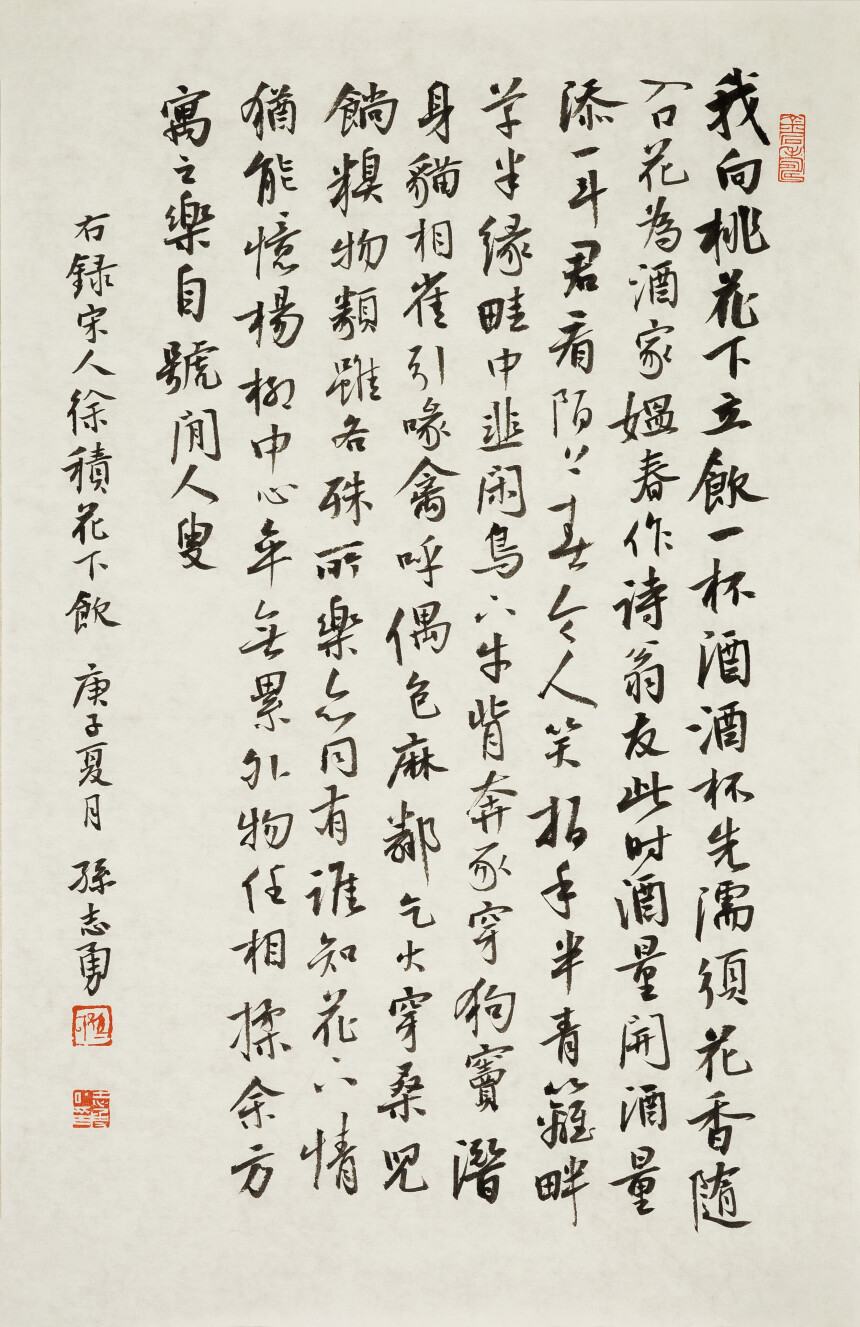 我向桃花下立飲一杯酒酒杯先濡須花香隨
入口花為酒家媪春作诗翁友此时酒量開酒量
添一斗君看陌上春令人笑拍手半青籬畔
草半緣畦中韭闲鳥下牛背奔豕穿狗竇潛
身貓相雀引喙禽呼偶包麻鄰乞火穿桑兒
餉糗物類雖各殊所樂亦同有誰知花下情
猶能憶楊柳中心卒無累外物任相揉余方
寓之樂自號閒人叟
右録宋人徐積花下飲 庚子夏月 孫志勇